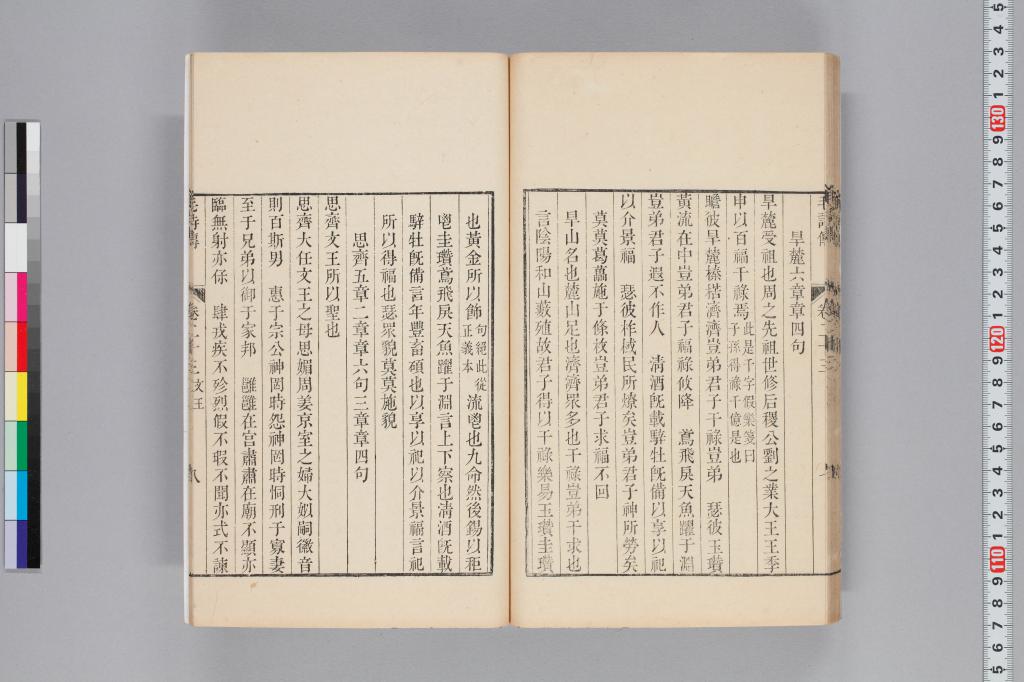 旱麓六章章四句
旱麓受祖也周之先祖世修后稷公劉之業大王王季
申以百福干祿焉此是千字假樂箋曰子孫得祿千億是也
瞻彼旱麓榛楛濟濟豈弟君子干祿豈弟　瑟彼玉瓚
黃流在中豈弟君子福祿攸降　鳶飛戾天魚躍于淵
豈弟君子遐不作人　淸酒旣載騂牡旣備以享以祀
以介景福　瑟彼柞棫民所燎矣豈弟君子神所勞矣
莫莫葛藟施于條枚豈弟君子求福不回
旱山名也麓山足也濟濟眾多也干祿豈弟干求也
言陰陽和山藪殖故君子得以干祿樂易玉瓚圭瓚
也黃金所以飾句絕此從正義本流鬯也九命然後錫以秬
鬯圭瓚鳶飛戾天魚躍于淵言上下察也淸酒旣載
騂牡旣備言年豐畜碩也以享以祀以介景福言祀
所以得福也瑟眾貌莫莫施貌
思齊五章二章章六句三章章四句
思齊文王所以聖也
思齊大任文王之母思媚周姜京室之婦大姒嗣徽音
則百斯男　惠于宗公神罔時怨神罔時恫刑于寡妻
至于兄弟以御于家邦　雝雝在宮肅肅在廟不顯亦
臨無射亦保　肆戎疾不殄烈假不瑕不聞亦式不諫
文王
八